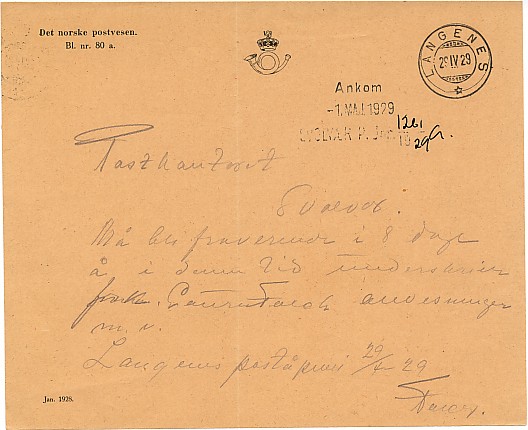 Det norske postvesen.
Bl. nr. 80 a.
LANGENES
29 IV 29
Ankom
-1. MAI 1929
SVOLVÆR P.
1261
Postkontoret
Svolvær.
Må bli fraværende i 8 dage
å i denne tid underskriver
anvesninger
m. v.
Langenes poståpneri 29/4 29
Jan. 1928.